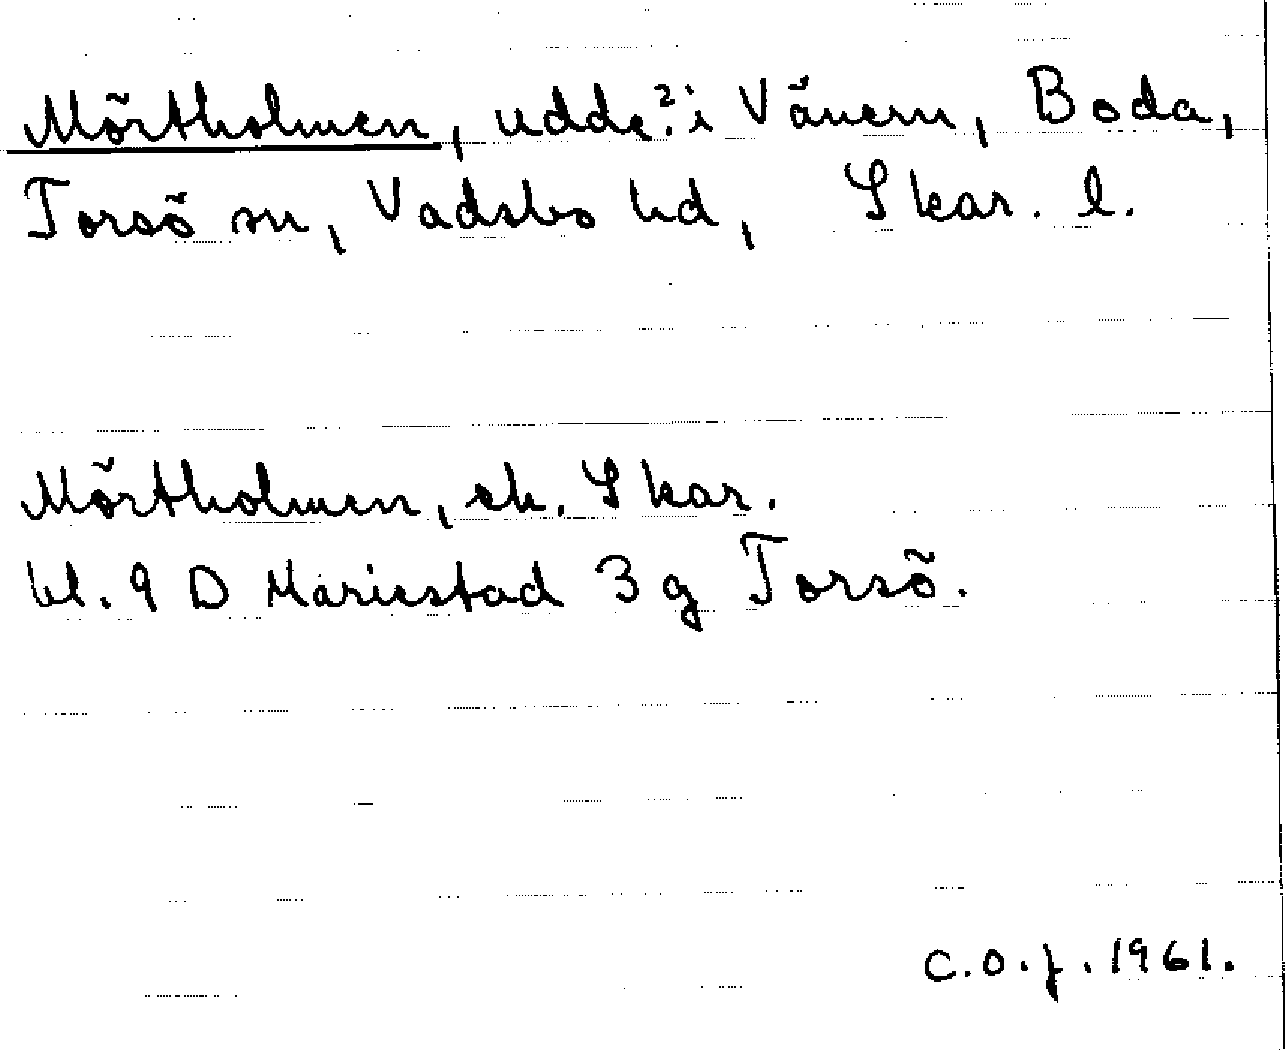 Mörtholmen, udde? i Vänern, Boda,
Torsö sn, Vadsbo hd, Skar. l.
Mörtholmen, ek. Skar.
bl. 9 D Mariestad 3 g Torsö.
C.O.f. 1961.